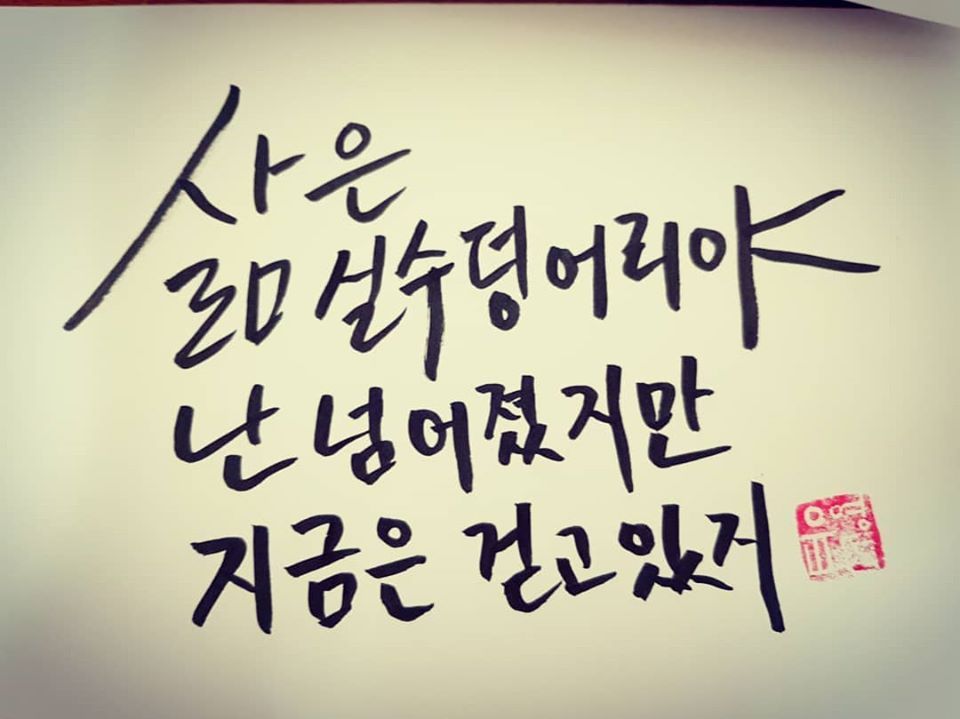 삶은 실수덩어리야
난 넘어졌지만
지금은 걷고있저